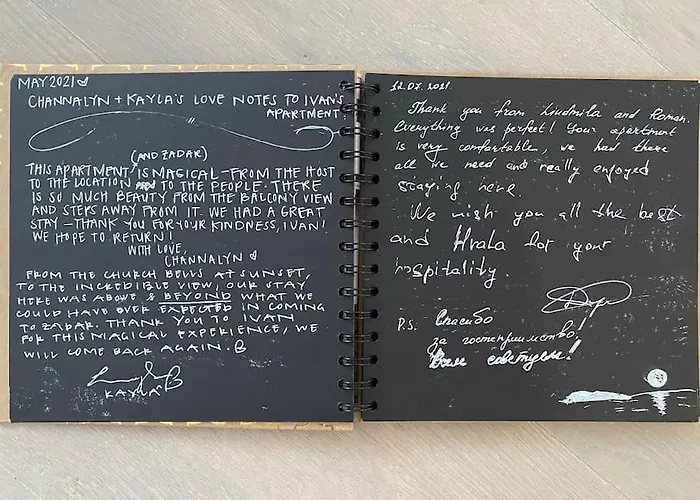 MAY 2021
CHANNALYN + KAYLA'S LOVE NOTES TO IVAN'S
APARTMENT
(AND ZADAR)
THIS APARTMENT IS MAGICAL - FROM THE HOST
TO THE LOCATION TO THE PEOPLE. THERE
IS SO MUCH BEAUTY FROM THE BALCONY VIEW
AND STEPS AWAY FROM IT. WE HAD A GREAT
STAY - THANK YOU FOR YOUR KINDNESS, IVAN!
WE HOPE TO RETURN!
WITH LOVE,
CHANNALYN
FROM THE CHURCH BELLS AT SUNSET,
TO THE INCREDIBLE VIEW, OUR STAY
HERE WAS ABOVE & BEYOND WHAT WE
COULD HAVE EVER EXPECTED IN COMING
TO ZADAR. THANK YOU TO IVAN
FOR THIS MAGICAL EXPERIENCE, WE
WILL COME BACK AGAIN.
KAYLA
12.07.2021.
Thank you from Liudmila and Roman.
Everything was perfect! Your apartment
is very comfortable, we had there
all we need and really enjoyed
staying here.
We wish you all the best
and Hvala for your
hospitality.
P.S. Спасибо
за гостеприимство!
Всем советуем!